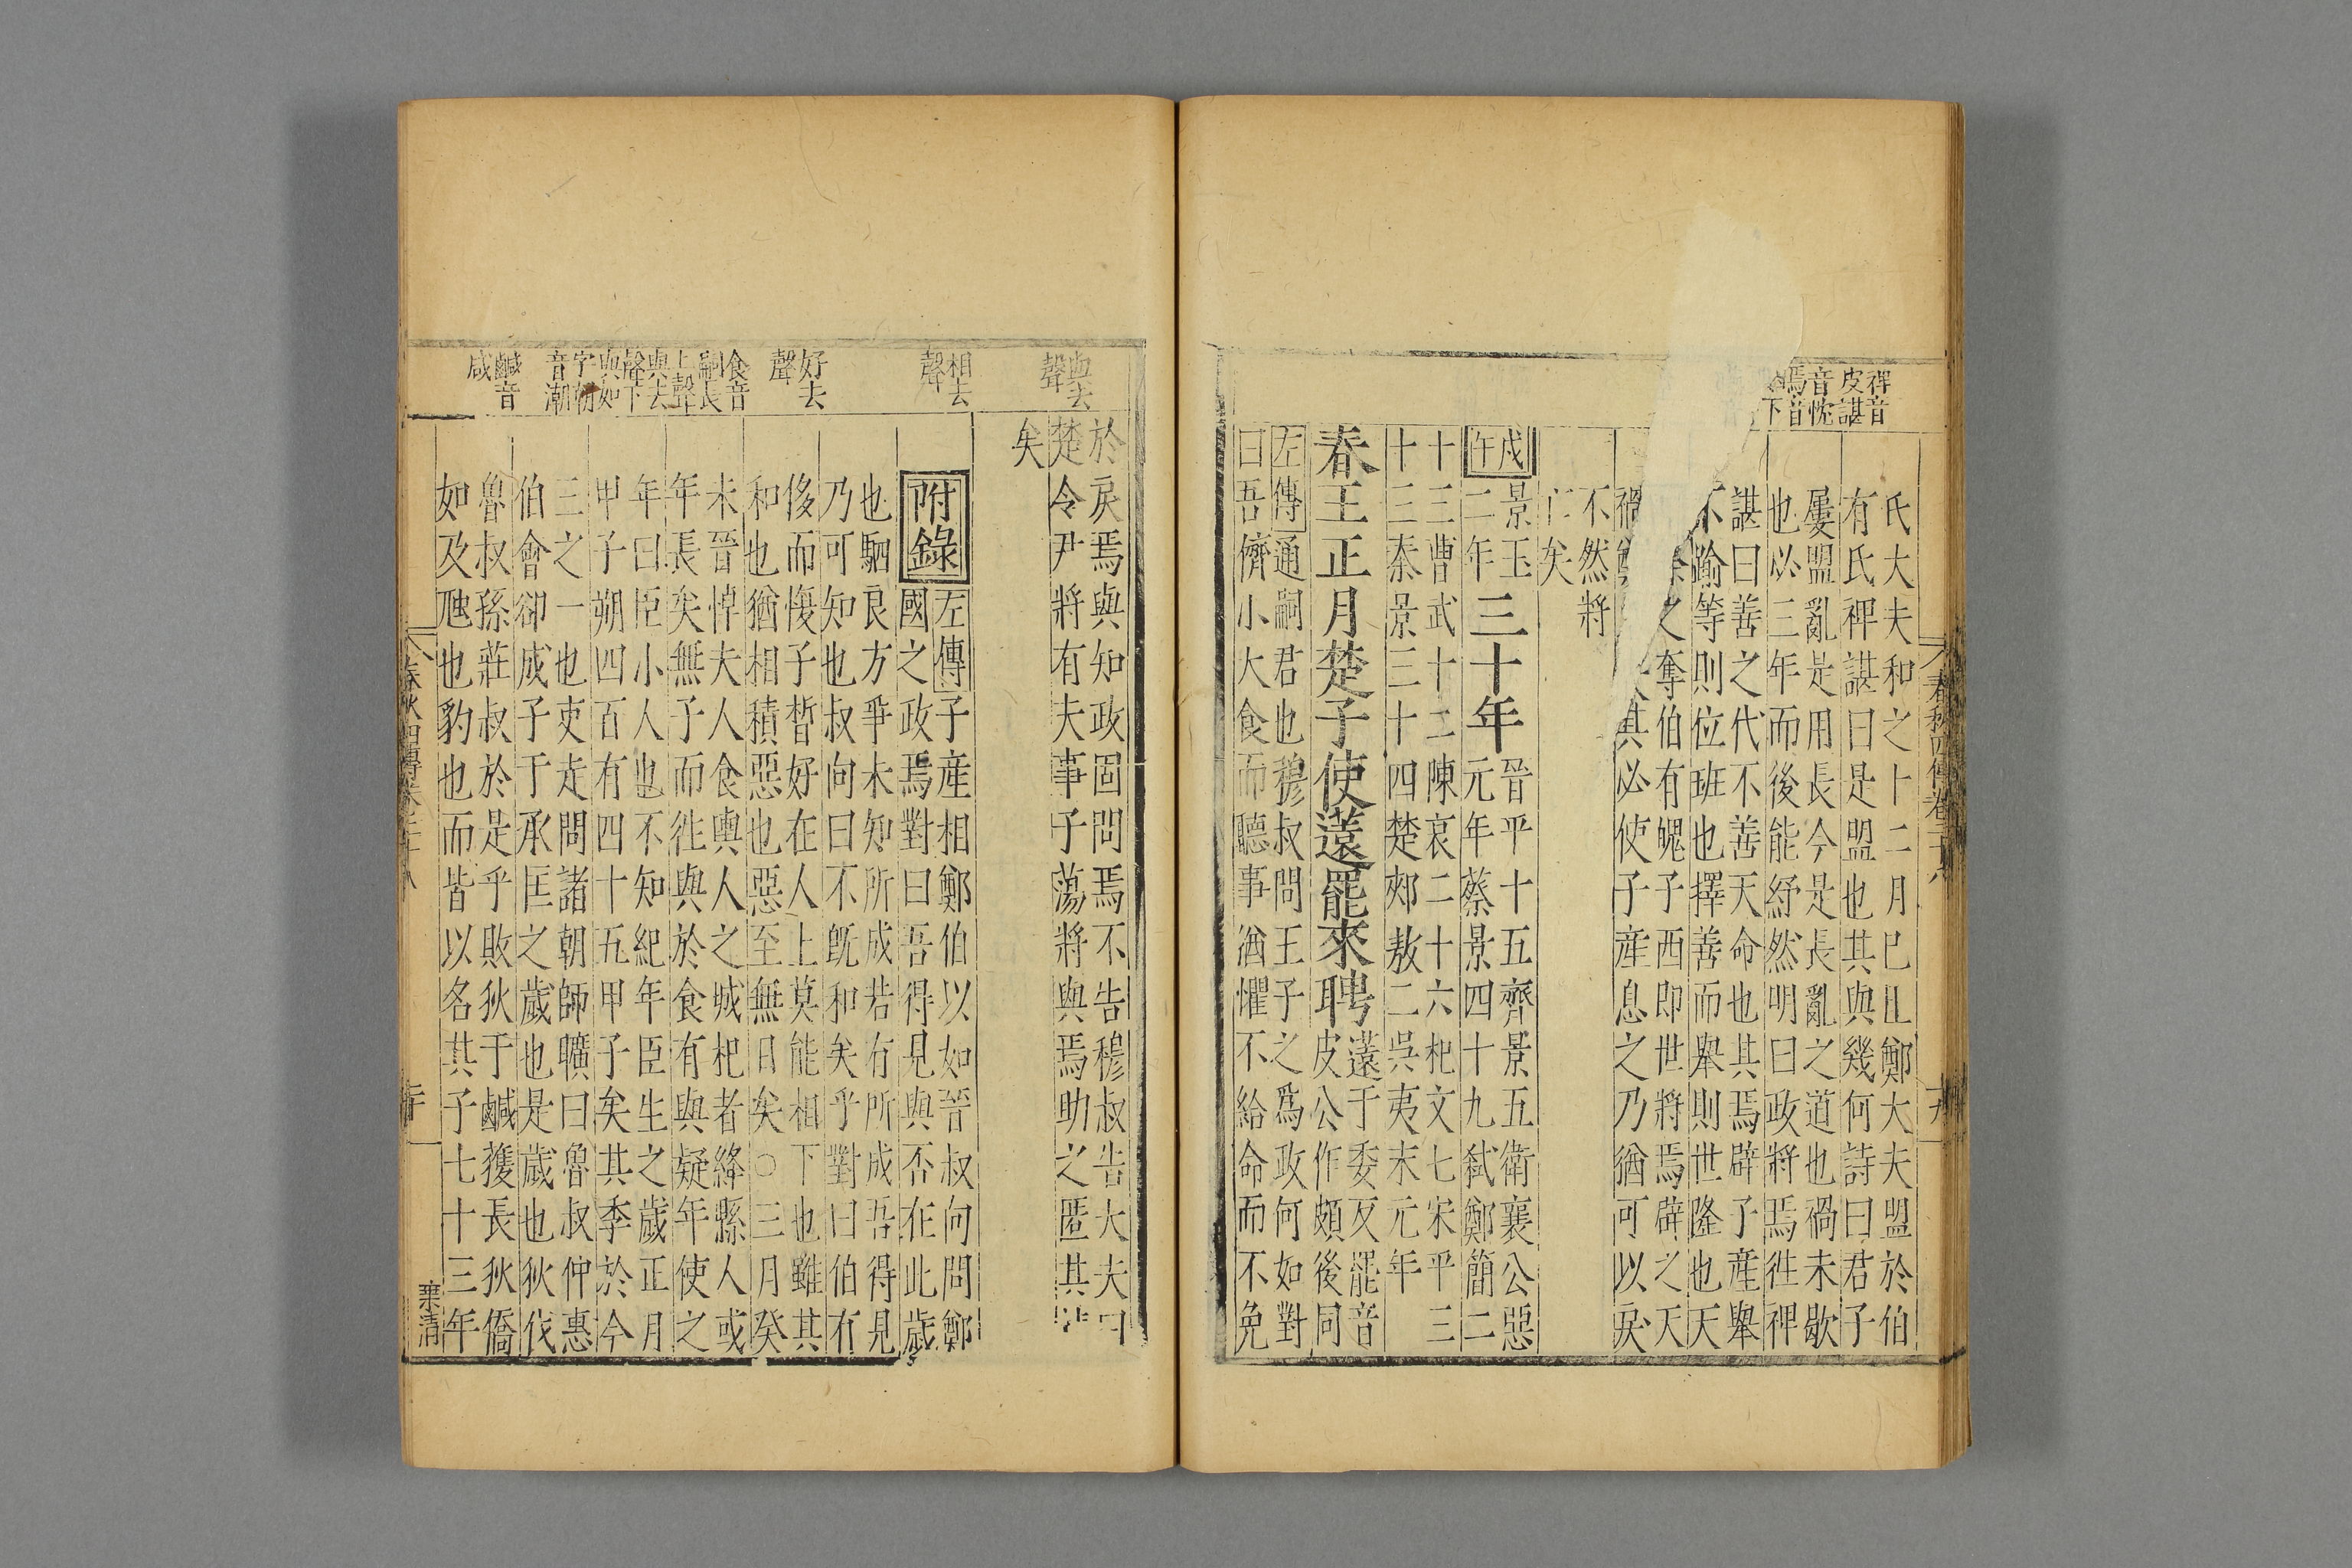 裨音
皮諶
音忱
焉音
下
氏大夫和之十二月巳丑鄭大夫盟於伯
有氏裨諶曰是盟也其與幾何詩曰君子
屢盟亂是用長今是長亂之道也禍未歇
也必三年而後能紓然明曰政將焉徃裨
諶曰善之代不善天命也其焉辟子産舉
不踰等則位班也擇善而舉則世隆也天
之奪伯有魄子西即世將焉辟之天
禍其必使子産息之乃猶可以戾
不然將
亡矣
戌午
景王二年
三十年
晉平十五齊景五衛襄公惡
元年蔡景四十九弑鄭簡二
十三曹武十二陳哀二十六杞文七宋平三
十三秦景三十四楚郟敖二吳夷末元年
春王正月楚子使薳罷來聘
薳于委反罷音
皮公作頗後同
左傳通嗣君也穆叔問王子之爲政何如對
曰吾儕小大食而聽事猶懼不給命而不免
春秋四傳卷二十八
十九
與去
聲
相去
聲
好去
聲
食音
嗣長
上聲
與去
聲下
與如
字朝
音潮
鹹音
咸
於戾焉與知政固問焉不告穆叔告大夫曰
楚令尹將有夫事子蕩將與焉助之匿其情
矣
附錄
左傳子産相鄭伯以如晉叔向問鄭
國之政焉對曰吾得見與否在此歲
也駟良方爭未知所成若有所成吾得見
乃可知也叔向曰不旣和矣乎對曰伯有
侈而愎子晳好在人上莫能相下也雖其
和也猶相積惡也惡至無日矣○三月癸
未晉悼夫人食輿人之城杞者絳縣人或
年長矣無子而徃與於食有與疑年使之
年曰臣小人也不知紀年臣生之歲正月
甲子朔四百有四十五甲子矣其季於今
三之一也吏走問諸朝師曠曰魯叔仲惠
伯會卻成子于承匡之歲也是歲也狄伐
魯叔孫莊叔於是乎敗狄于鹹獲長狄僑
如及虺也豹也而皆以名其子七十三年
春秋四傳卷二十八
二十
葉清